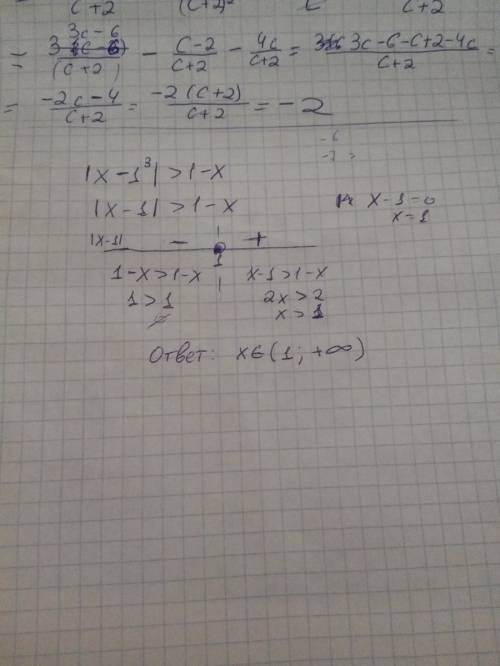 c+2 (c+2)² c+2
= 3c-6 / (c+2) - c-2 / c+2 - 4c / c+2 = 3c-6-c+2-4c / c+2 =
= -2c-4 / c+2 = -2(c+2) / c+2 = -2
-6
-7
|x-1³| > 1-x
|x-1| > 1-x x-1=0
x=1
|x-1| - +
1
1-x>1-x x-1>1-x
1>1 2x>2
x>1
Ответ: x∈(1; +∞)